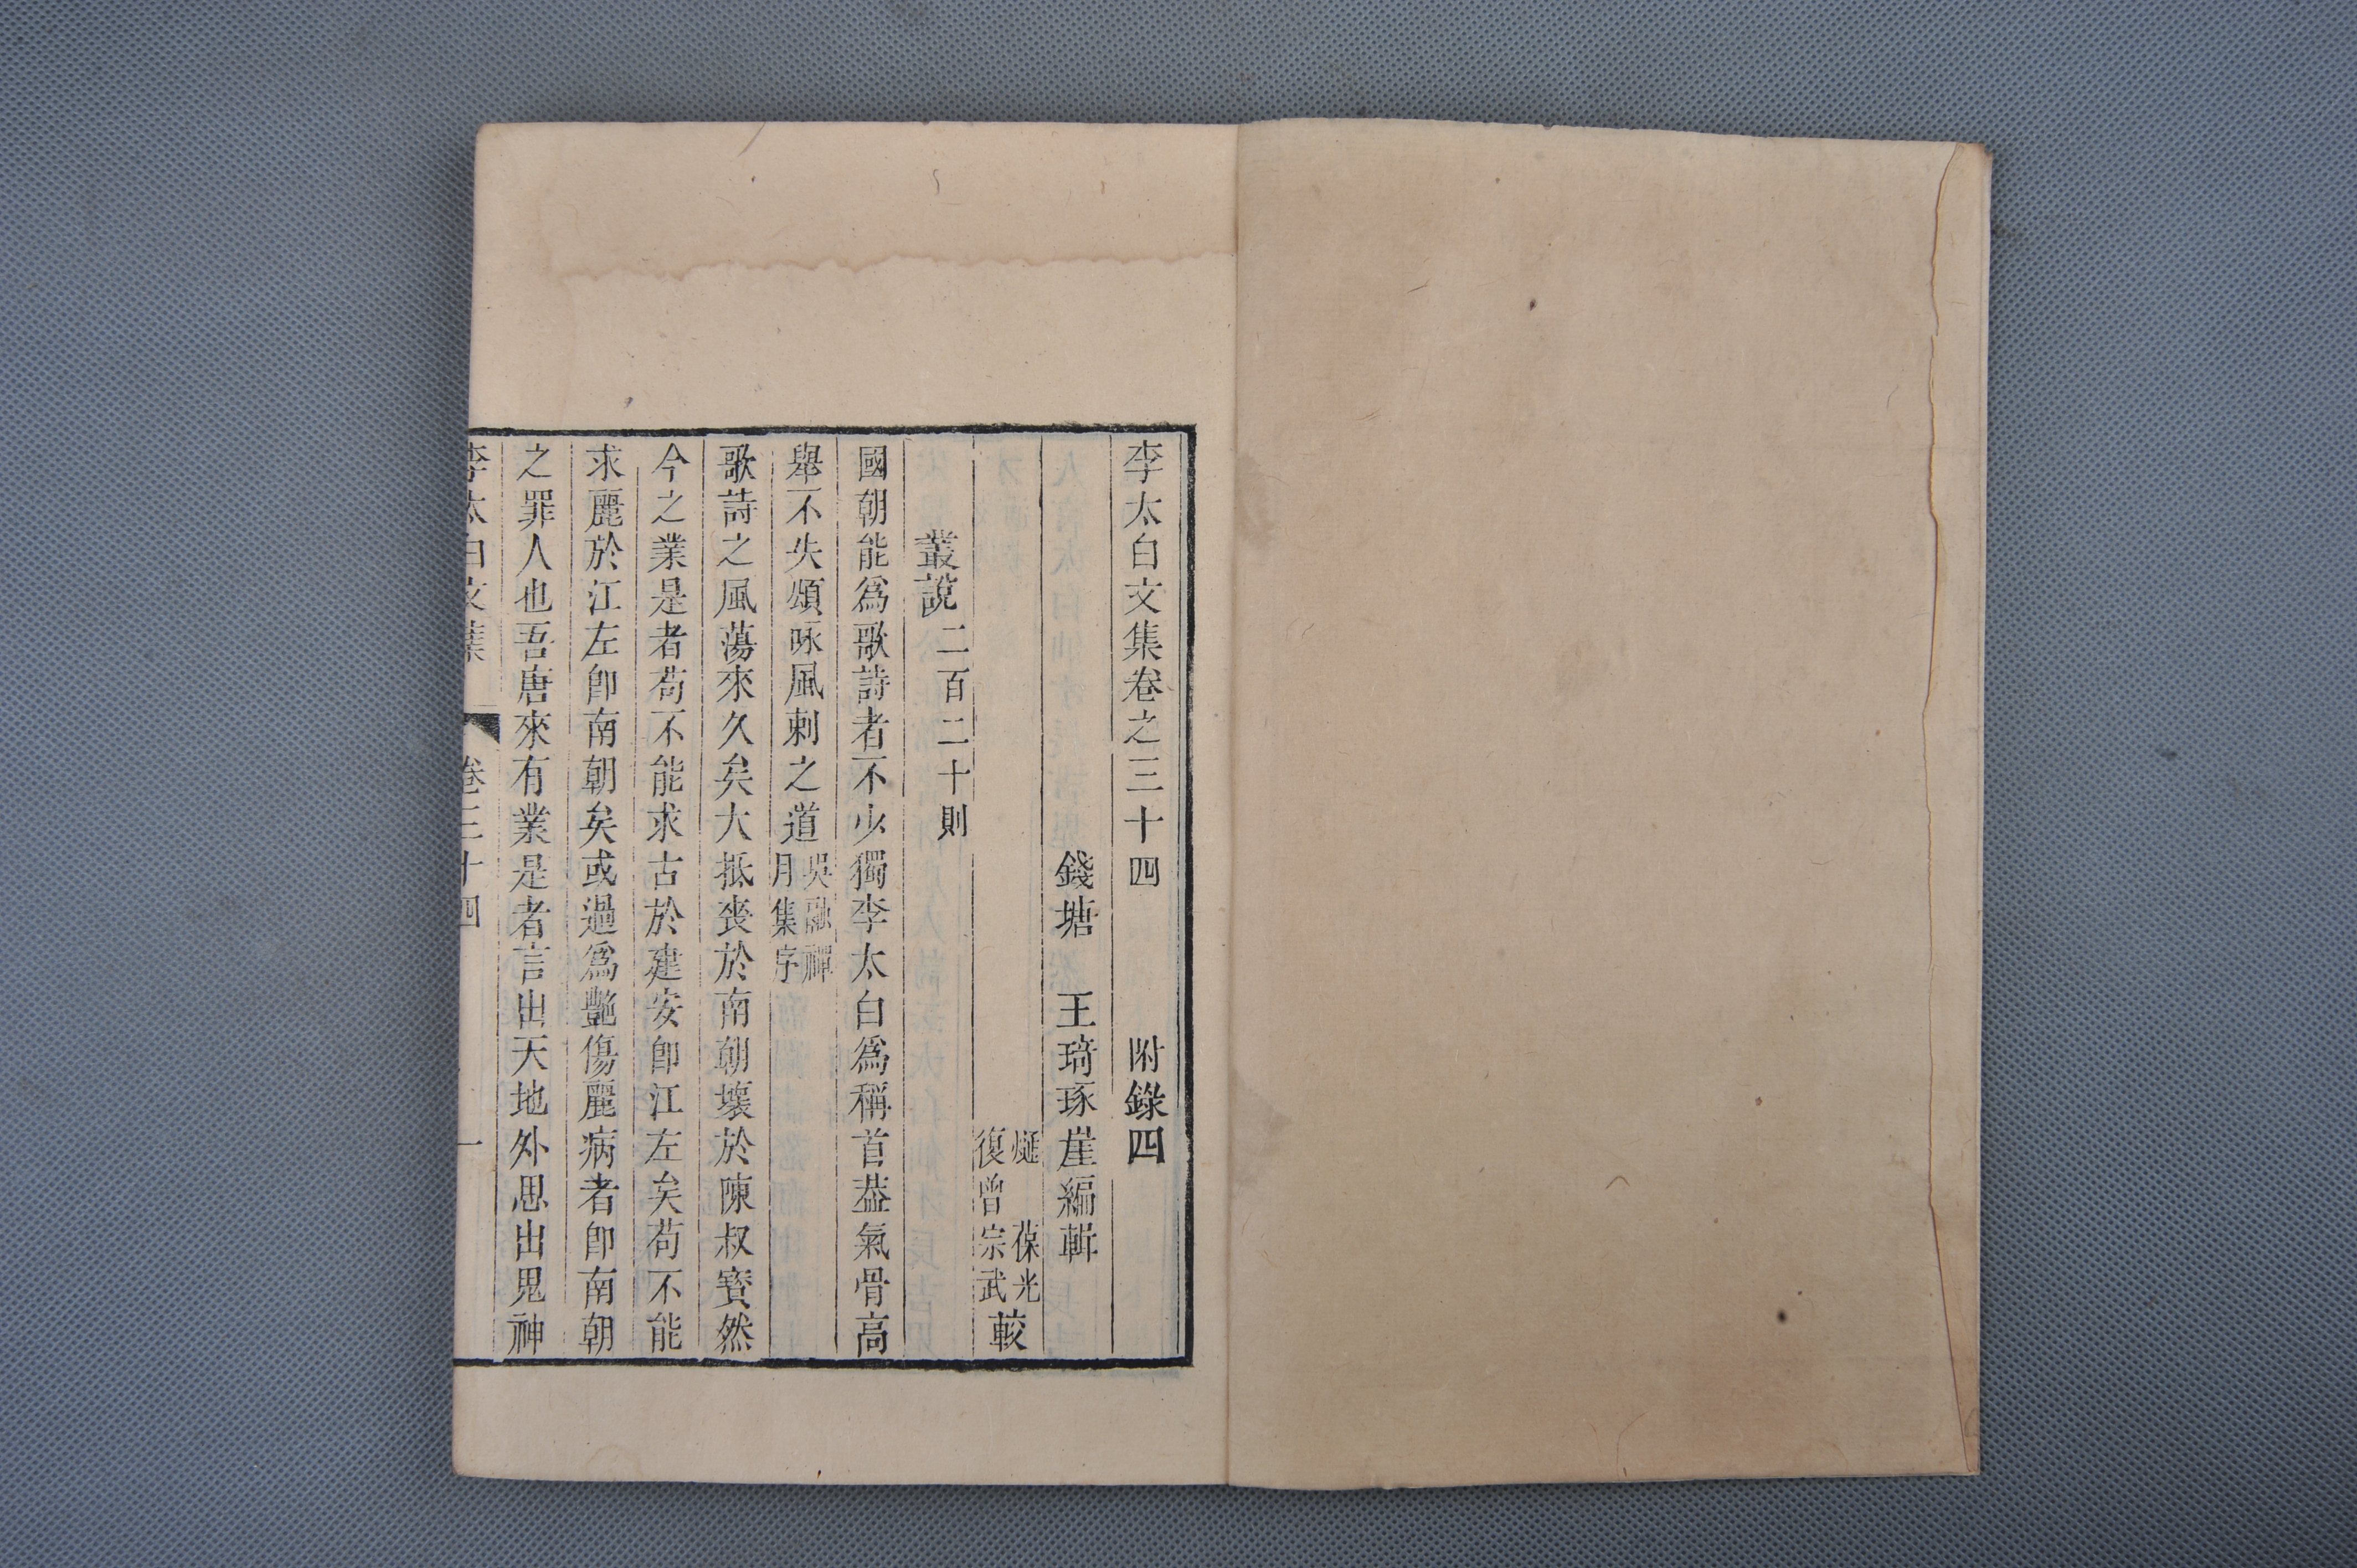 李太白文集卷之三十四 附錄四
錢塘 王琦琢崖編輯
縱 葆光
復曾宗武 較
叢說 二百二十則
國朝能爲歌詩者不少獨李太白爲稱首葢氣骨高
舉不失頌咏風刺之道 吳融禪月集序
歌詩之風蕩來久矣大抵喪於南朝壞於陳叔寳然
今之業是者苟不能求古於建安卽江左矣苟不能
求麗於江左卽南朝矣或過爲艷傷麗病者卽南朝
之罪人也吾唐來有業是者言出天地外思出鬼神
李太白文集 卷三十四 一